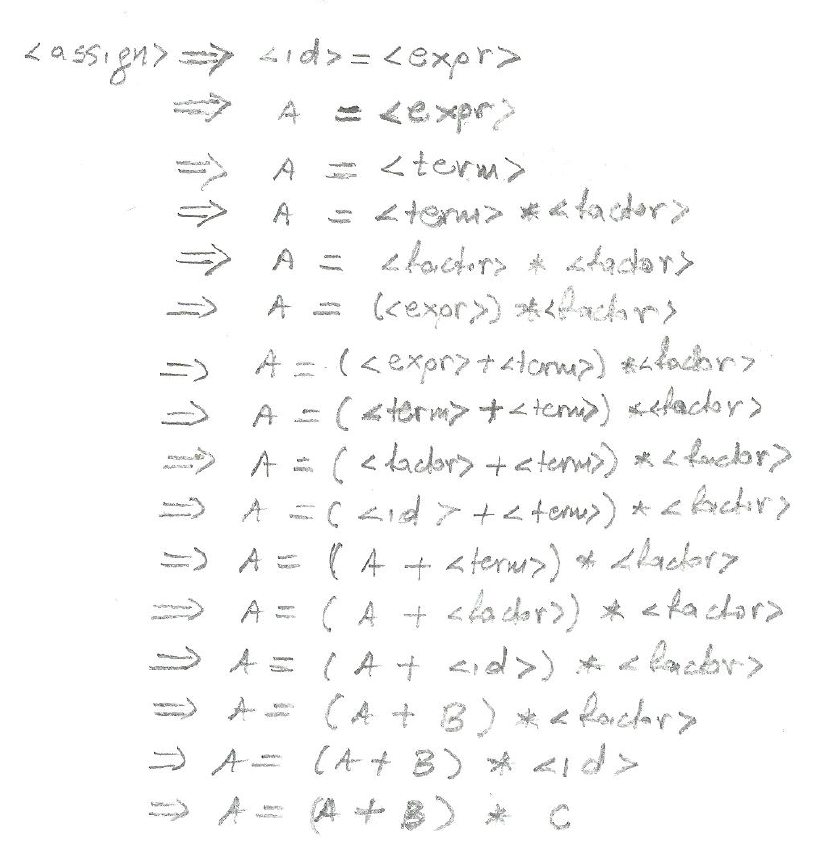 <assign> ⇒ <id> = <expr>
⇒ A = <expr>
⇒ A = <term>
⇒ A = <term> * <factor>
⇒ A = <factor> * <factor>
⇒ A = (<expr>) * <factor>
⇒ A = (<expr> + <term>) * <factor>
⇒ A = (<term> + <term>) * <factor>
⇒ A = (<factor> + <term>) * <factor>
⇒ A = (<id> + <term>) * <factor>
⇒ A = (A + <term>) * <factor>
⇒ A = (A + <factor>) * <factor>
⇒ A = (A + <id>) * <factor>
⇒ A = (A + B) * <factor>
⇒ A = (A + B) * <id>
⇒ A = (A + B) * C